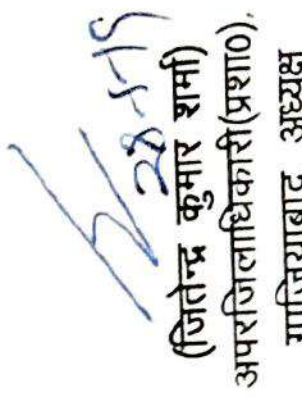 28-5-18
(जितेन्द्र कुमार शर्मा)
अपरजिलाधिकारी(प्रशा0),
गाजियाबाद अध्यक्ष